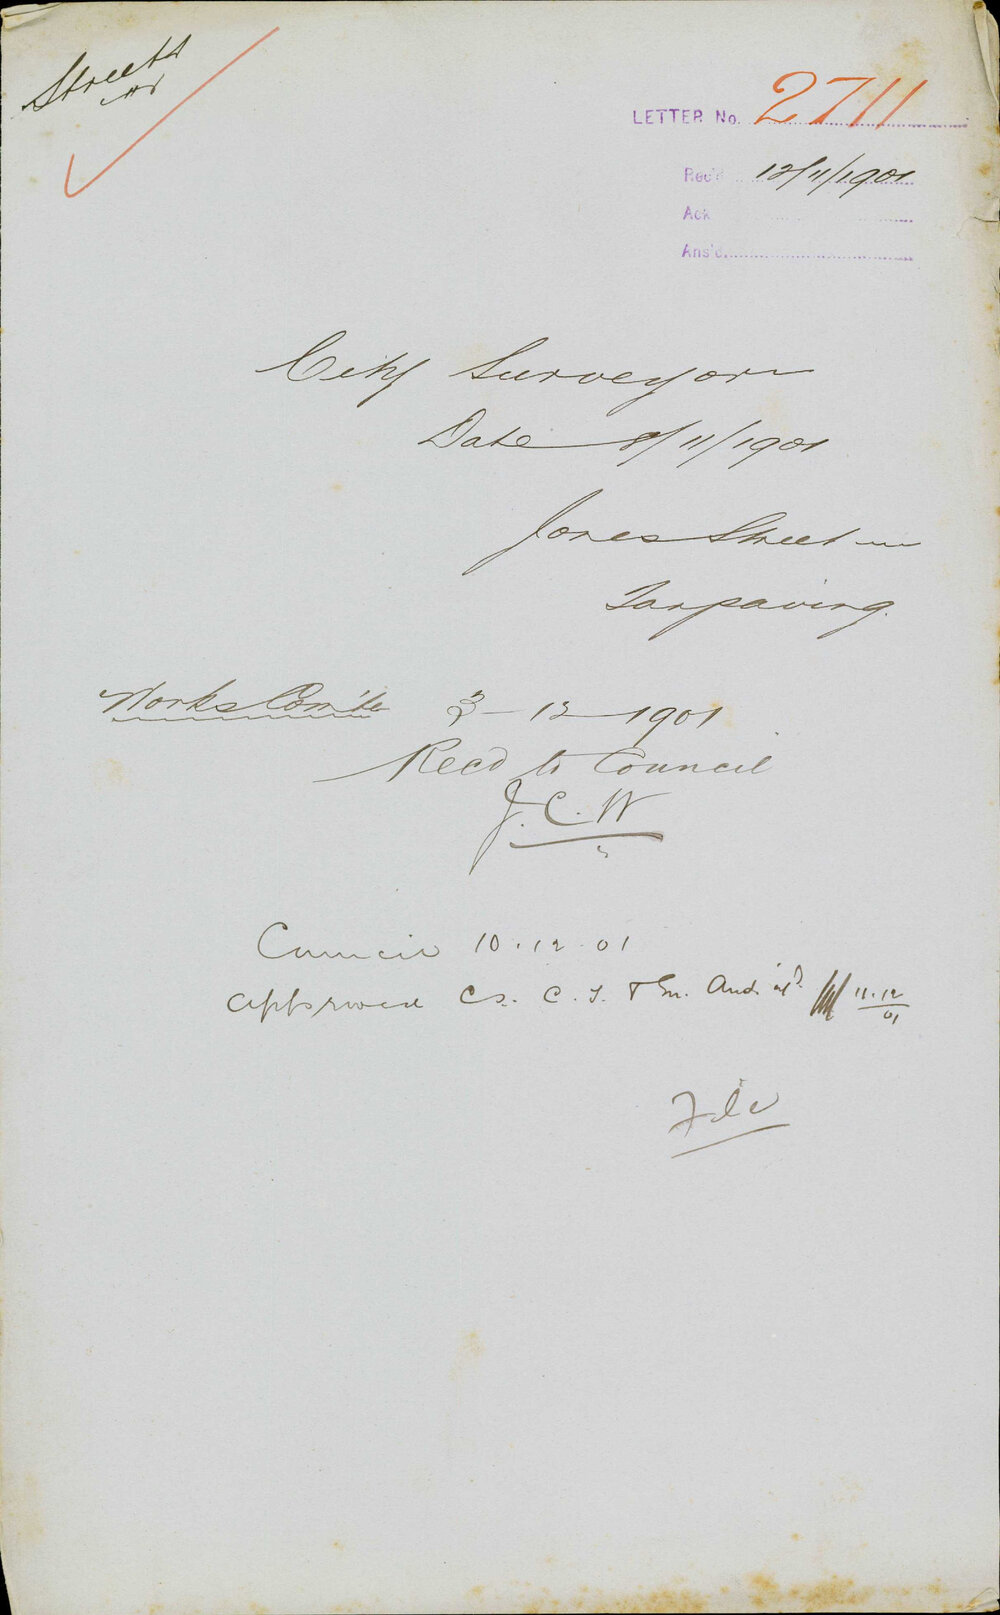 Streets
LETTER No. 2711
Rec'd 12/11/1901
Ack
Ans'd.
City Surveyor
Date 8/11/1901
Jones Street
Tarpaving.
Works Com'tee 3-12-1901
Recd to Council
J. C. W
Council 10.12.01
Approved Cs. C. T. & 11.12/01
File